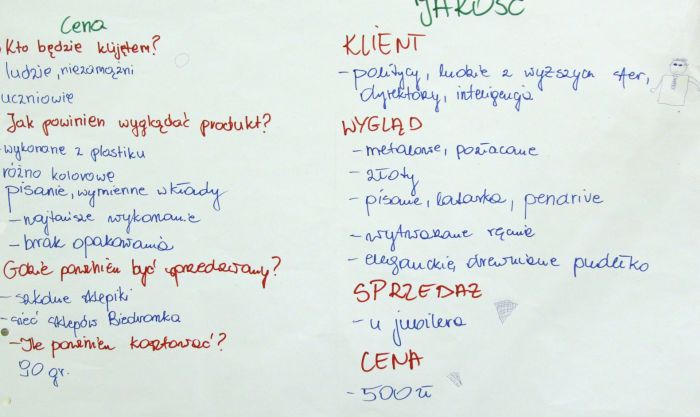 Cena
Kto będzie klijętem?
ludzie, niezamożni
uczniowie
Jak powinien wyglądać produkt?
wykonane z plastiku
różno kolorowe
pisanie, wymienne wkłady
- najtańsze wykonanie
- brak opakowania
Gdzie powinien być sprzedawany?
- szkolne sklepiki
- sieć sklepów Biedronka
- Ile powinien kosztować?
90 gr.
JAKOŚĆ
KLIENT
- politycy, ludzie z wyższych sfer,
dyrektorzy, inteligencja
WYGLĄD
- metalowe, pozłacane
- złoty
- pisanie, latarka, pendrive
- wytwarzane ręcznie
- eleganckie, drewniane pudełko
SPRZEDAŻ
- u jubilera
CENA
- 500 zł